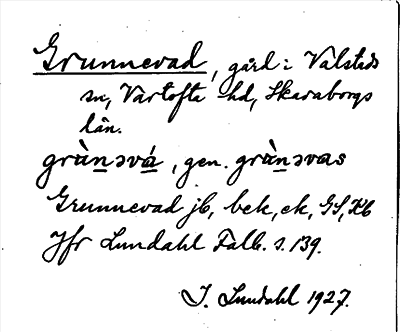 Grunnevad, gård i Valstads
sn, Vartofta hd, Skaraborgs
län.
grànəvá, gen. grànəvas
Grunnevad jb, bek, ek, GS, Kb
Jfr Lundahl Falb. s. 139.
I. Lundahl 1927.